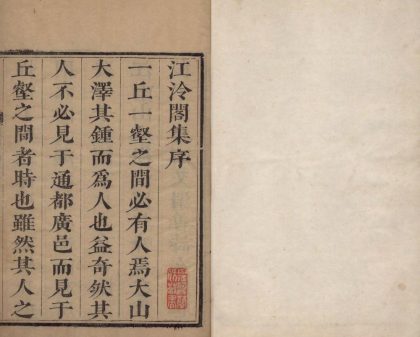 江泠閣集序
一丘一壑之間必有人焉大山
大澤其鍾而爲人也益奇然其
人不必見于通都廣邑而見于
丘壑之間者時也雖然其人之